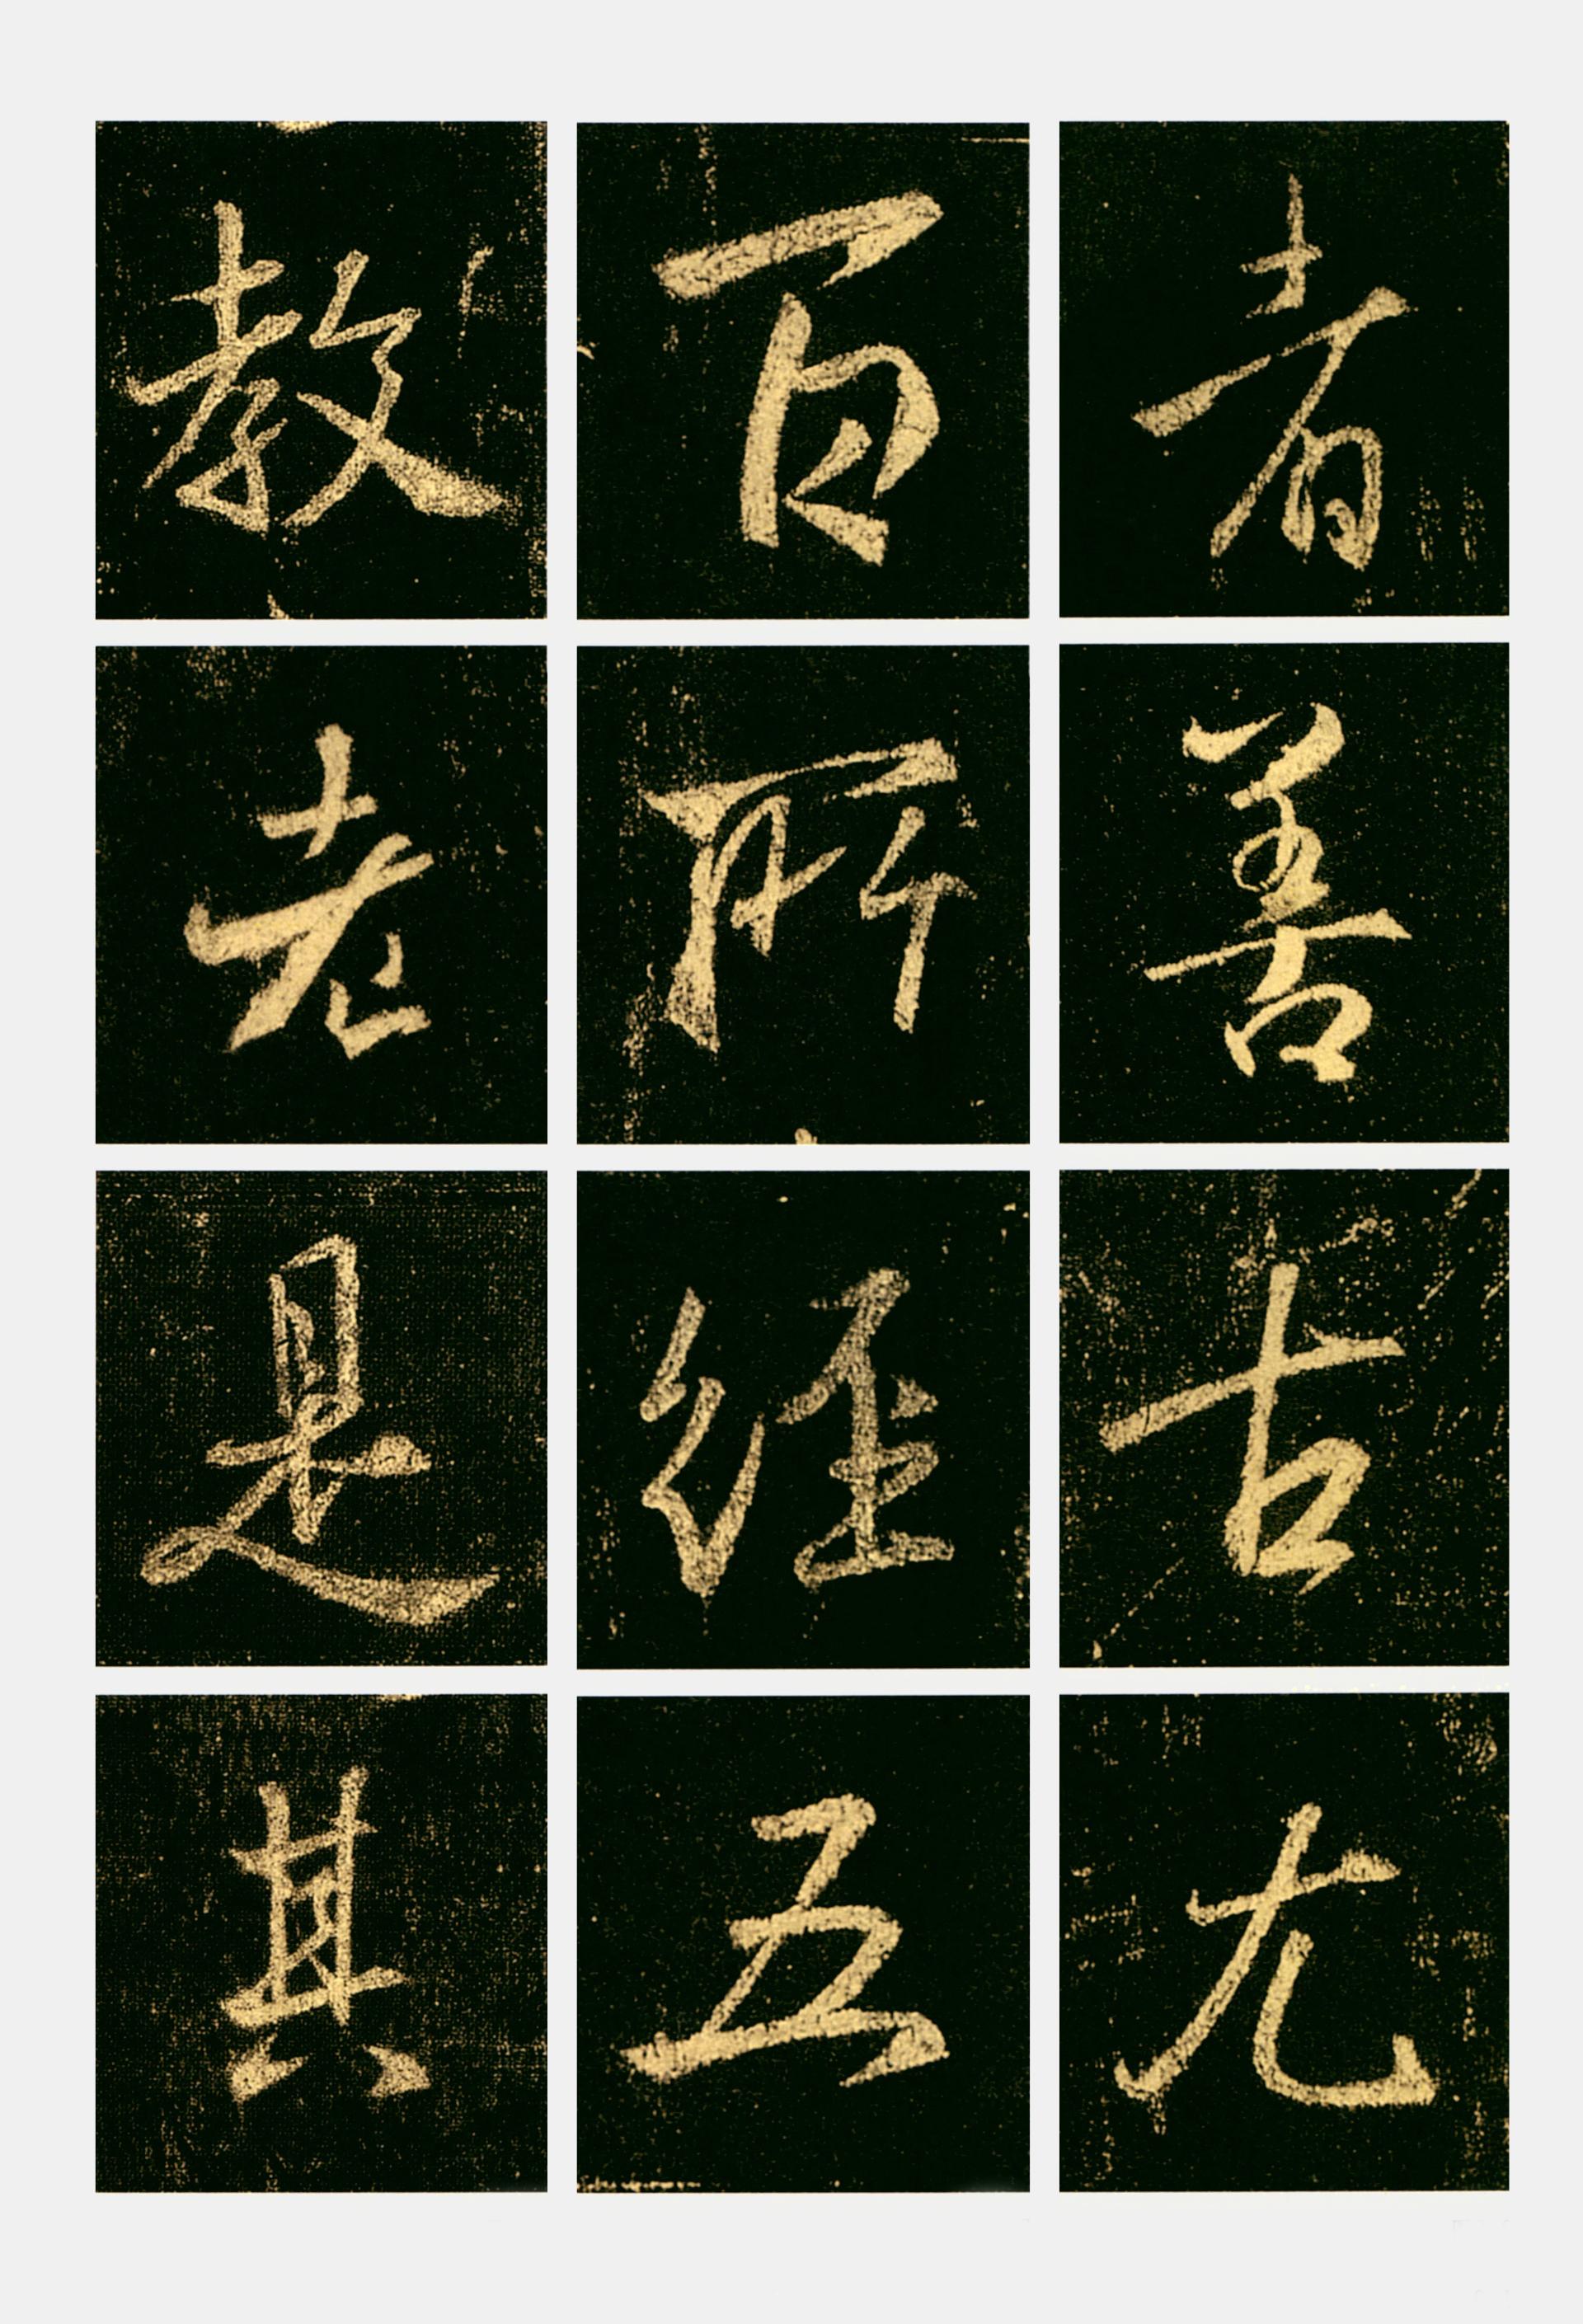 者善古尤
百所经五
教老是其